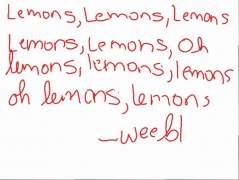 Lemons, Lemons, Lemons
Lemons, Lemons, Oh
lemons, lemons, lemons
oh lemons, lemons
—weebl